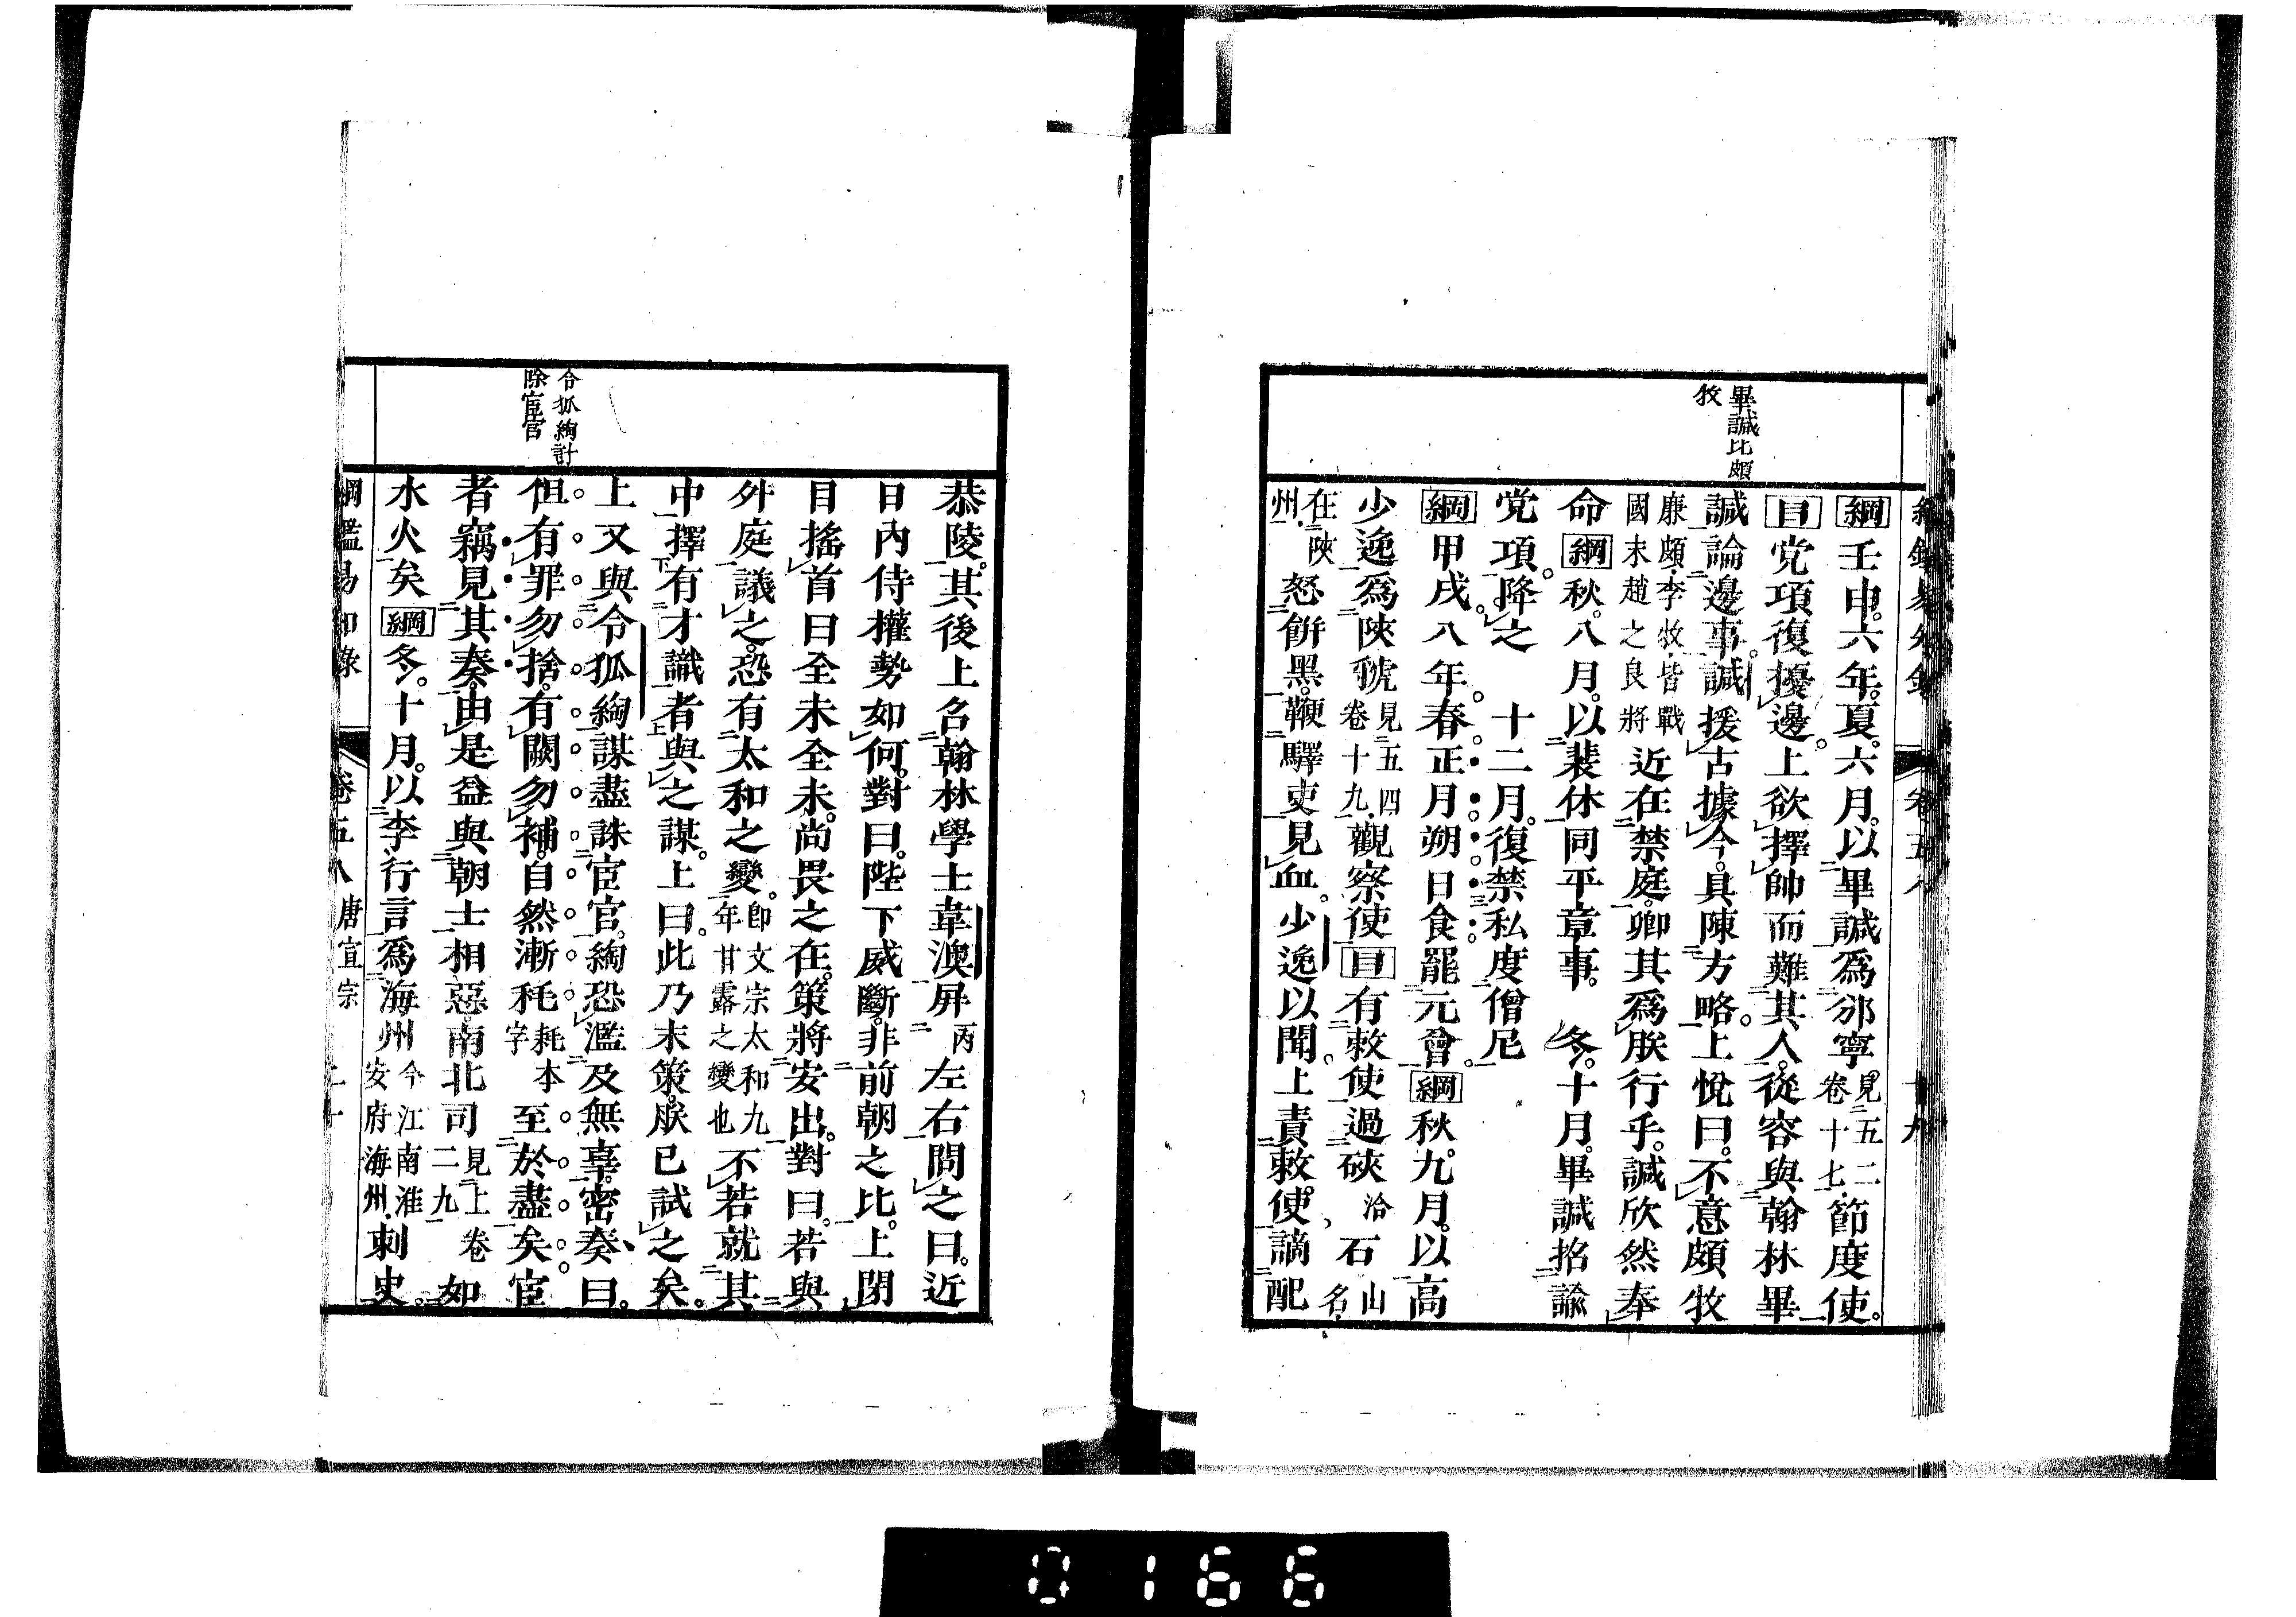 畢諴比頗
牧
綱壬申。六年。夏。六月。以畢諴爲邠寧見五二卷十七節度使。
目党項復擾邊。上欲擇帥而難其人。從容與翰林畢
諴論邊事。諴援古據今。具陳方略。上悅曰。不意頗牧
廉頗李牧皆戰國末趙之良將近在禁庭。卿其爲朕行乎。諴欣然奉
命綱秋。八月。以裴休同平章事。冬。十月。畢諴招諭
党項。降之 十二月。復禁私度僧尼
綱甲戌。八年。春。正月朔日食罷元會。綱秋。九月。以高
少逸爲陝虢見五四卷十九觀察使目有敕使過硤洽石山名
在陝州怒餅黑。鞭驛吏見血。少逸以聞。上責敕使。謫配
卷五八 十九
令狐綯計
除宦官
恭陵。其後上召翰林學士韋澳屏丙左右問之曰。近
日內侍權勢如何。對曰。陛下威斷。非前朝之比。上閉
目搖首曰全未全未。尚畏之在。策將安出。對曰。若與
外庭議之。恐有太和之變。卽文宗太和九年甘露之變也不若就其
中擇有才識者與之謀。上曰。此乃末策。朕已試之矣。
上又與令狐綯謀盡誅宦官。綯恐濫及無辜。密奏曰。
但有罪勿捨。有闕勿補。自然漸秏耗本字至於盡矣。宦
者竊見其奏。由是益與朝士相惡。南北司見上卷二九如
水火矣綱冬。十月。以李行言爲海州今江南淮安府海州刺史。
綱鑑易知錄 卷五八 唐宣宗 二十
0166